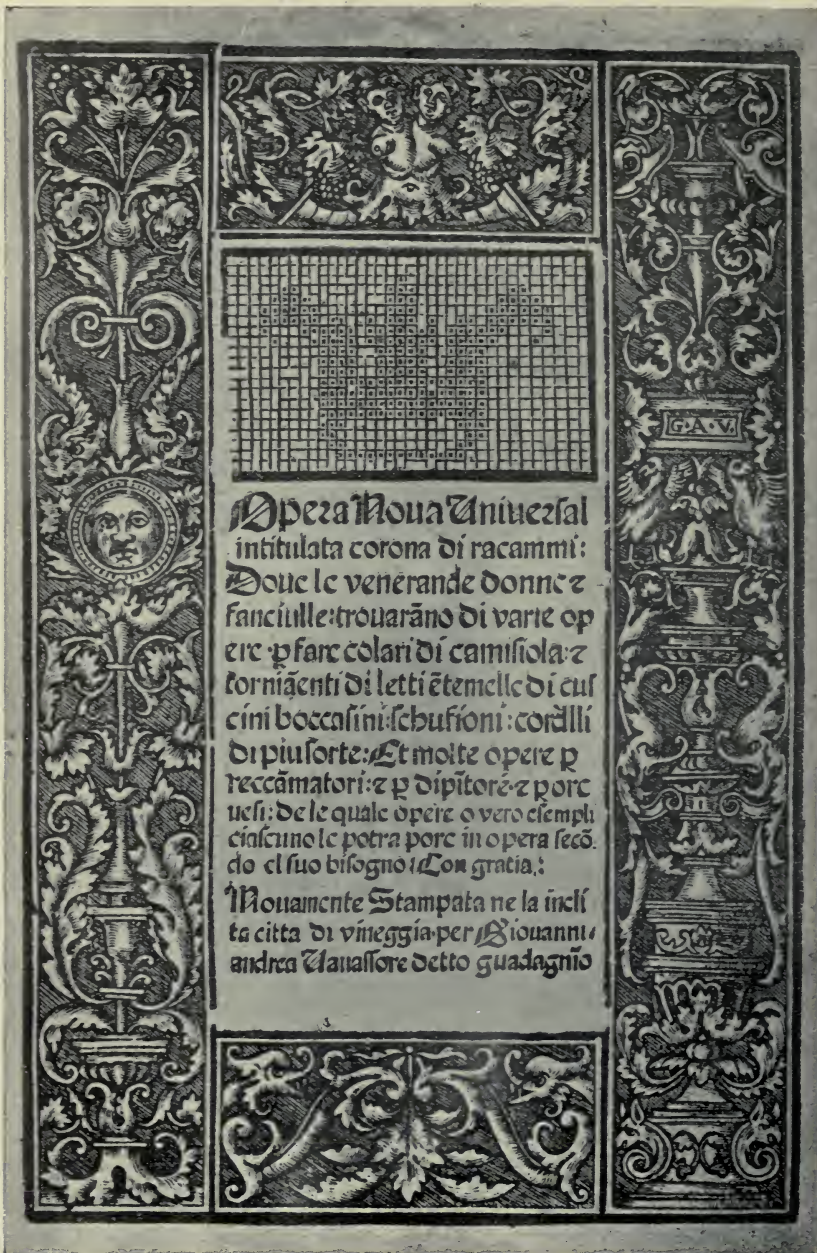 G·A·V·
Opera Noua Uniuersal
intitulata corona di racammi:
Doue le venerande donne ⁊
fanciulle: trouarãno di varie op
ere ꝑ fare colari di camisiola ⁊
torniãenti di letti ẽtemelle di cus
cini boccasini: schufioni: cordlli
di piu sorte: Et molte opere ꝑ
reccãmatori: ⁊ ꝑ dipĩtore ⁊ ꝑorc
uesi: de le quale opere o vero esempli
ciascuno le potra pore in opera secõ
do el suo bisogno: Con gratia.:
Nouamente Stampata ne la incli
ta citta di vineggia·per Giouanni
andrea Uauassore detto guadagnĩo